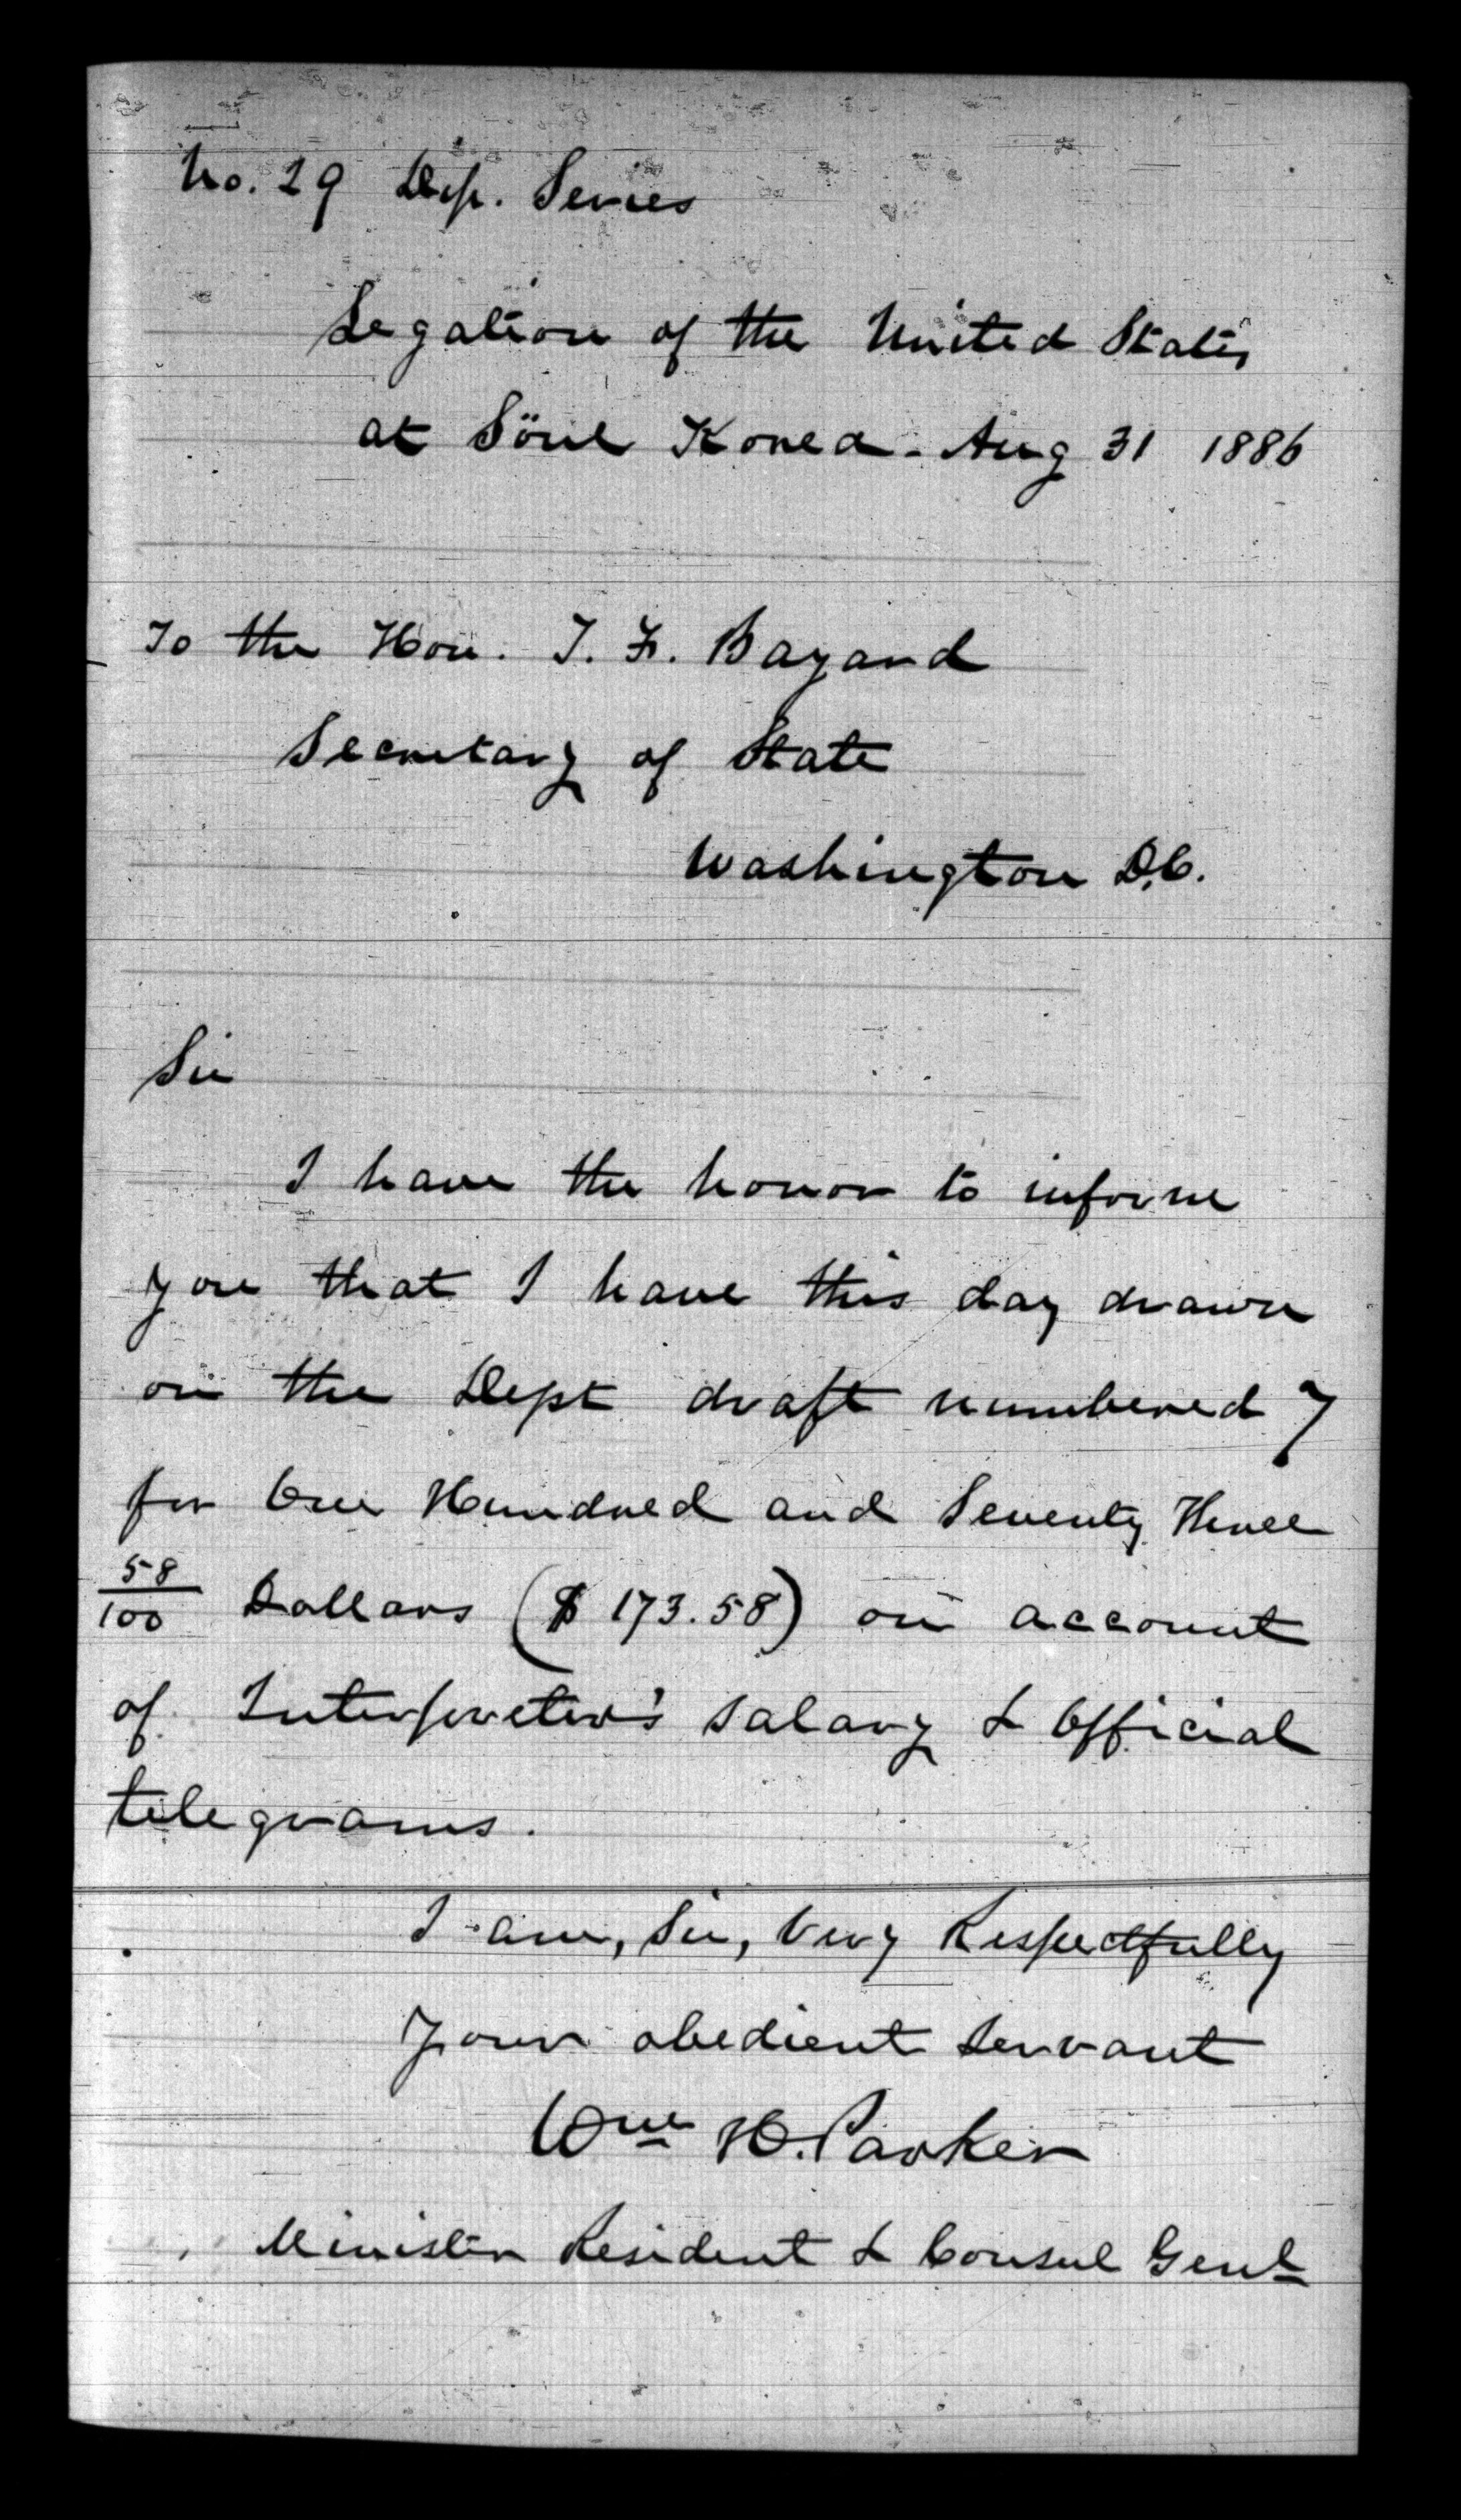 No. 29 Dip. Series
Legation of the United States
at Söul Korea. Aug 31 1886
To the Hon. T. F. Bayard
Secretary of State
Washington D.C.
Sir
I have the honor to inform
you that I have this day drawn
on the Dept draft numbered 7
for One Hundred and Seventy Three
58/100 Dollars ($ 173.58) on account
of Interpreter's salary & Official
telegrams.
I am, Sir, Very Respectfully
Your obedient servant
Wm H. Parker
Minister Resident & Consul Genl